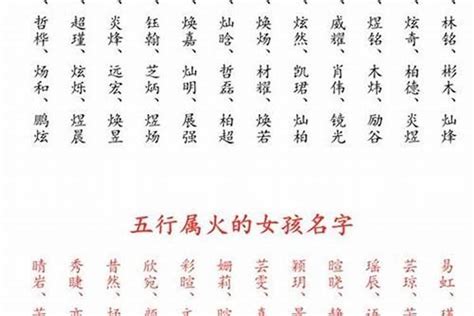 哲桦、炀和、鹏炫
超瑾、炫烁、煜晨
炎烽、远宏、焕昱
钰翰、芝炳、煜炀
焕嘉、灿明、展强
灿晗、哲磊、柏超
焕炀、材耀、焕若
炫然、凯珺、灿柏
威耀、肖伟、镜光
煜铭、木炜、励谷
炫奇、柏德、炎煜
林铭、彬木、灿烽
五行属火的女孩名字
晴岩、
秀睫、
昔然、
欣宛、
彩暄、
姗莉、
芸雯、
颖玥、
暄晓、
瑶辰、
芸琼、
易虹、